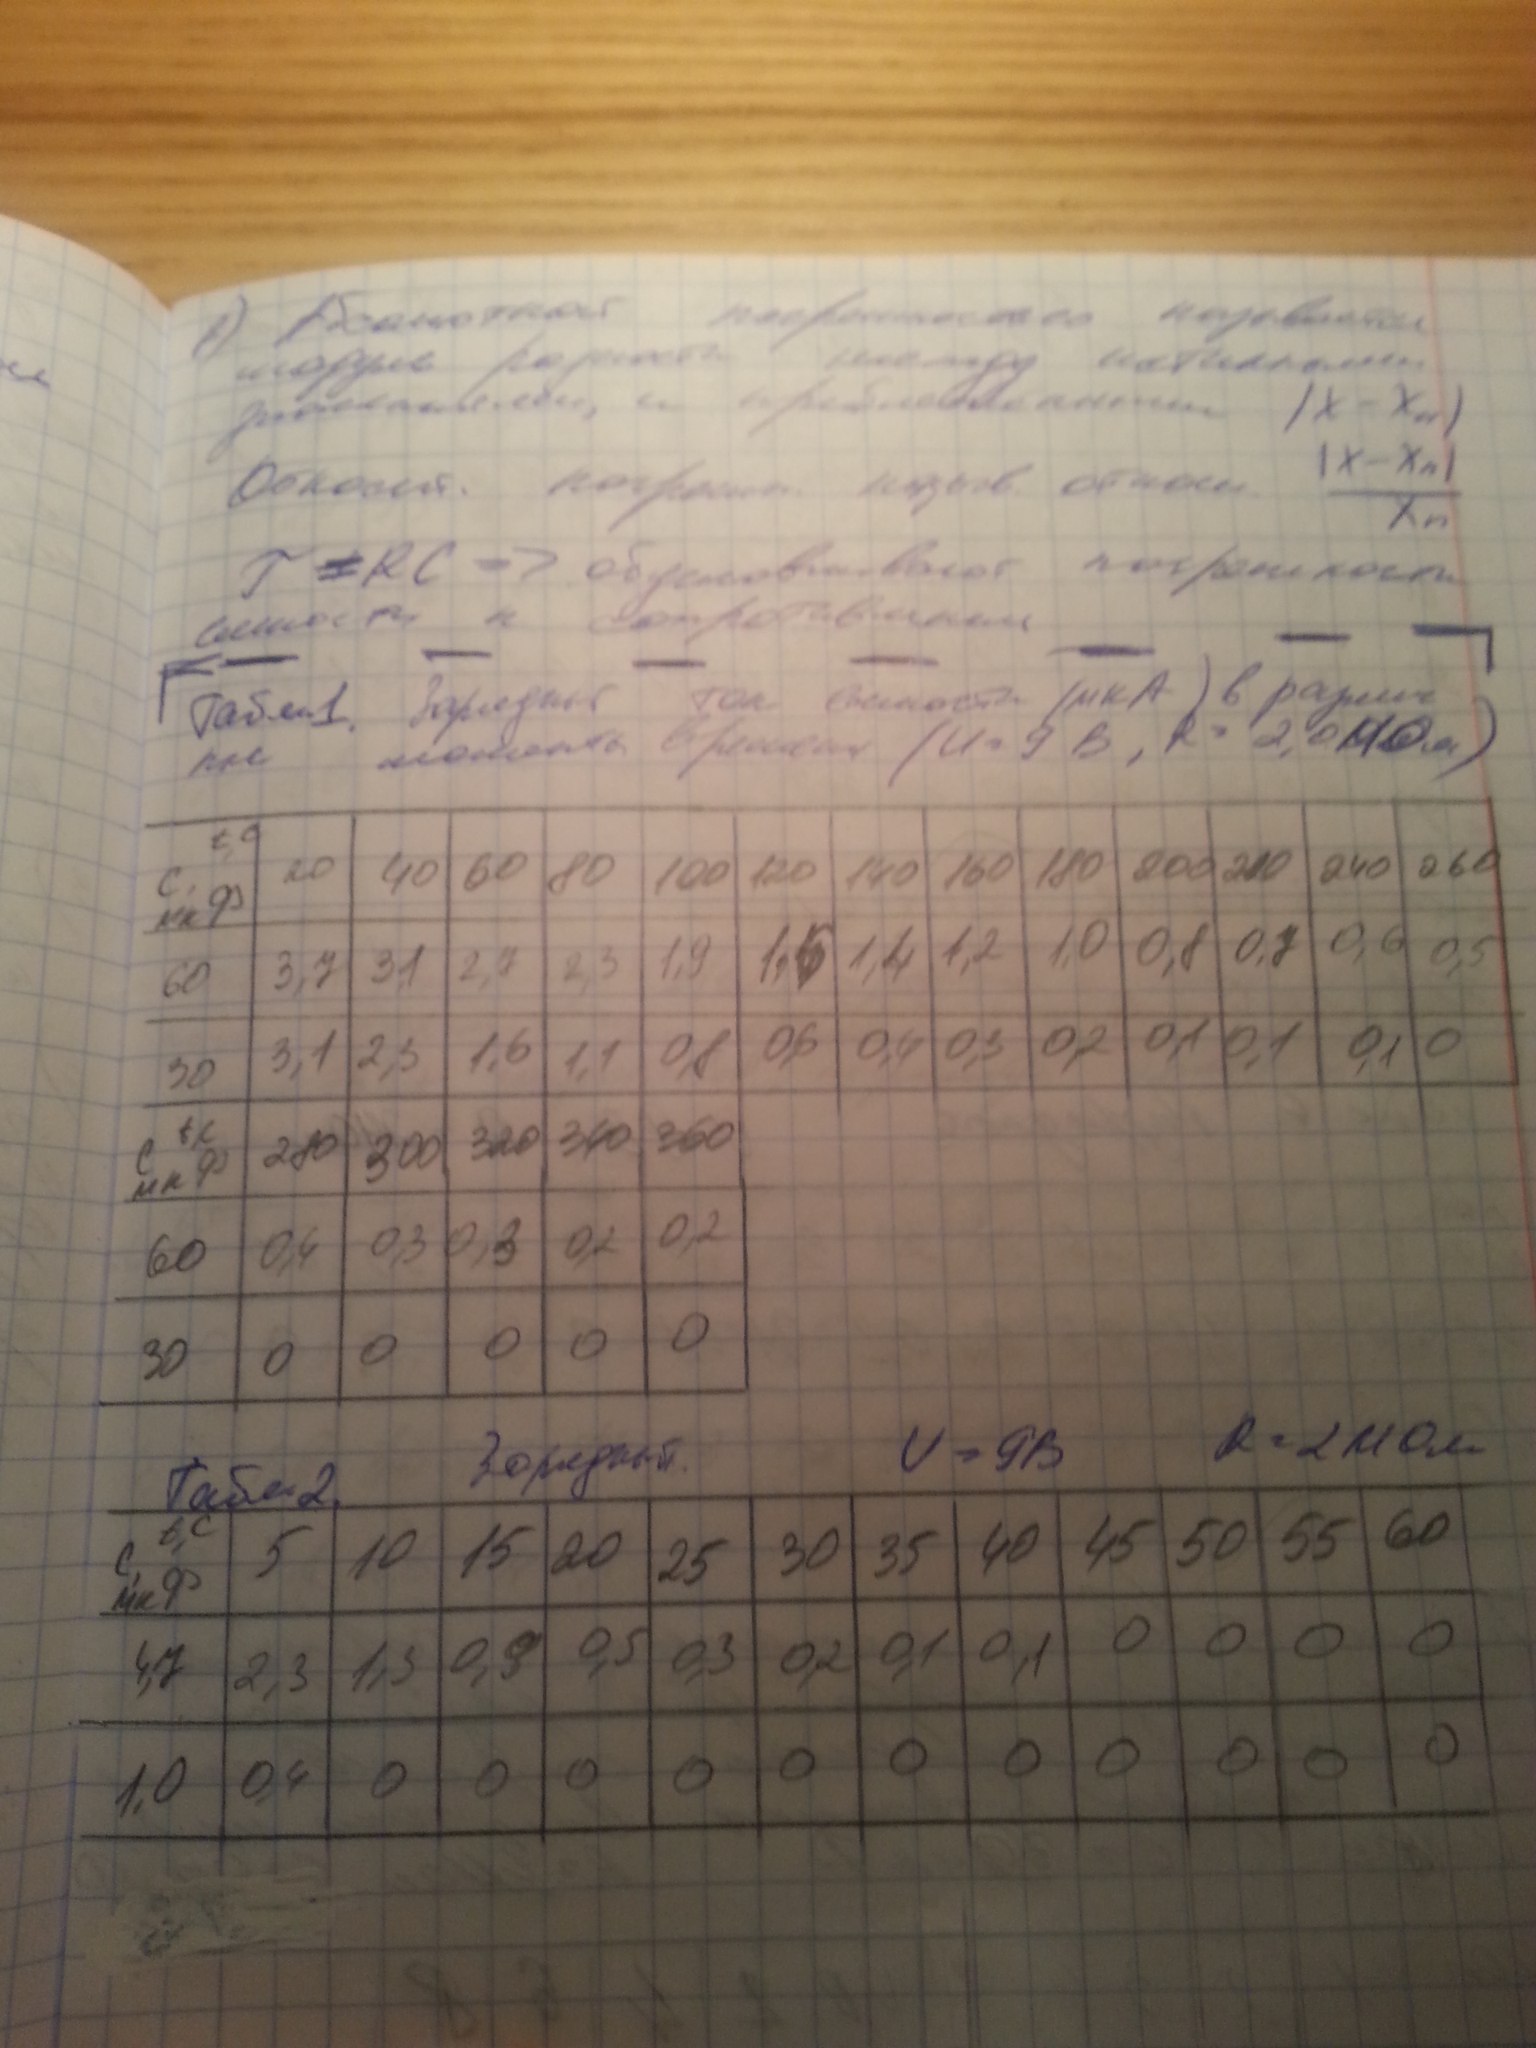 Абсолютной погрешностью называется
модуль разности между истинным
значением, и приближенным |X - Xп|
Относит. погрешн. назыв. отнош. |X - Xп| / Xп
T = RC => обусловливают погрешности
емкости и сопротивления
Табл 1. Зарядный ток емкости (мкА) в различ
ные моменты времени (U = 9 В, R = 2,0 МОм)
C, мкФ t, с 20 40 60 80 100 120 140 160 180 200 220 240 260
60 3,7 3,1 2,7 2,3 1,9 1,4 1,2 1,0 0,8 0,7 0,6 0,5
30 3,1 2,3 1,6 1,1 0,8 0,6 0,4 0,3 0,2 0,1 0,1 0,1 0
C мкФ t,с 280 300 320 340 360
60 0,4 0,3 0,3 0,2 0,2
30 0 0 0 0 0
Табл 2. Зарядный. U = 9В R = 2 МОм
C, мкФ t,с 5 10 15 20 25 30 35 40 45 50 55 60
4,7 2,3 1,3 0,9 0,5 0,3 0,2 0,1 0,1 0 0 0 0
1,0 0,4 0 0 0 0 0 0 0 0 0 0 0